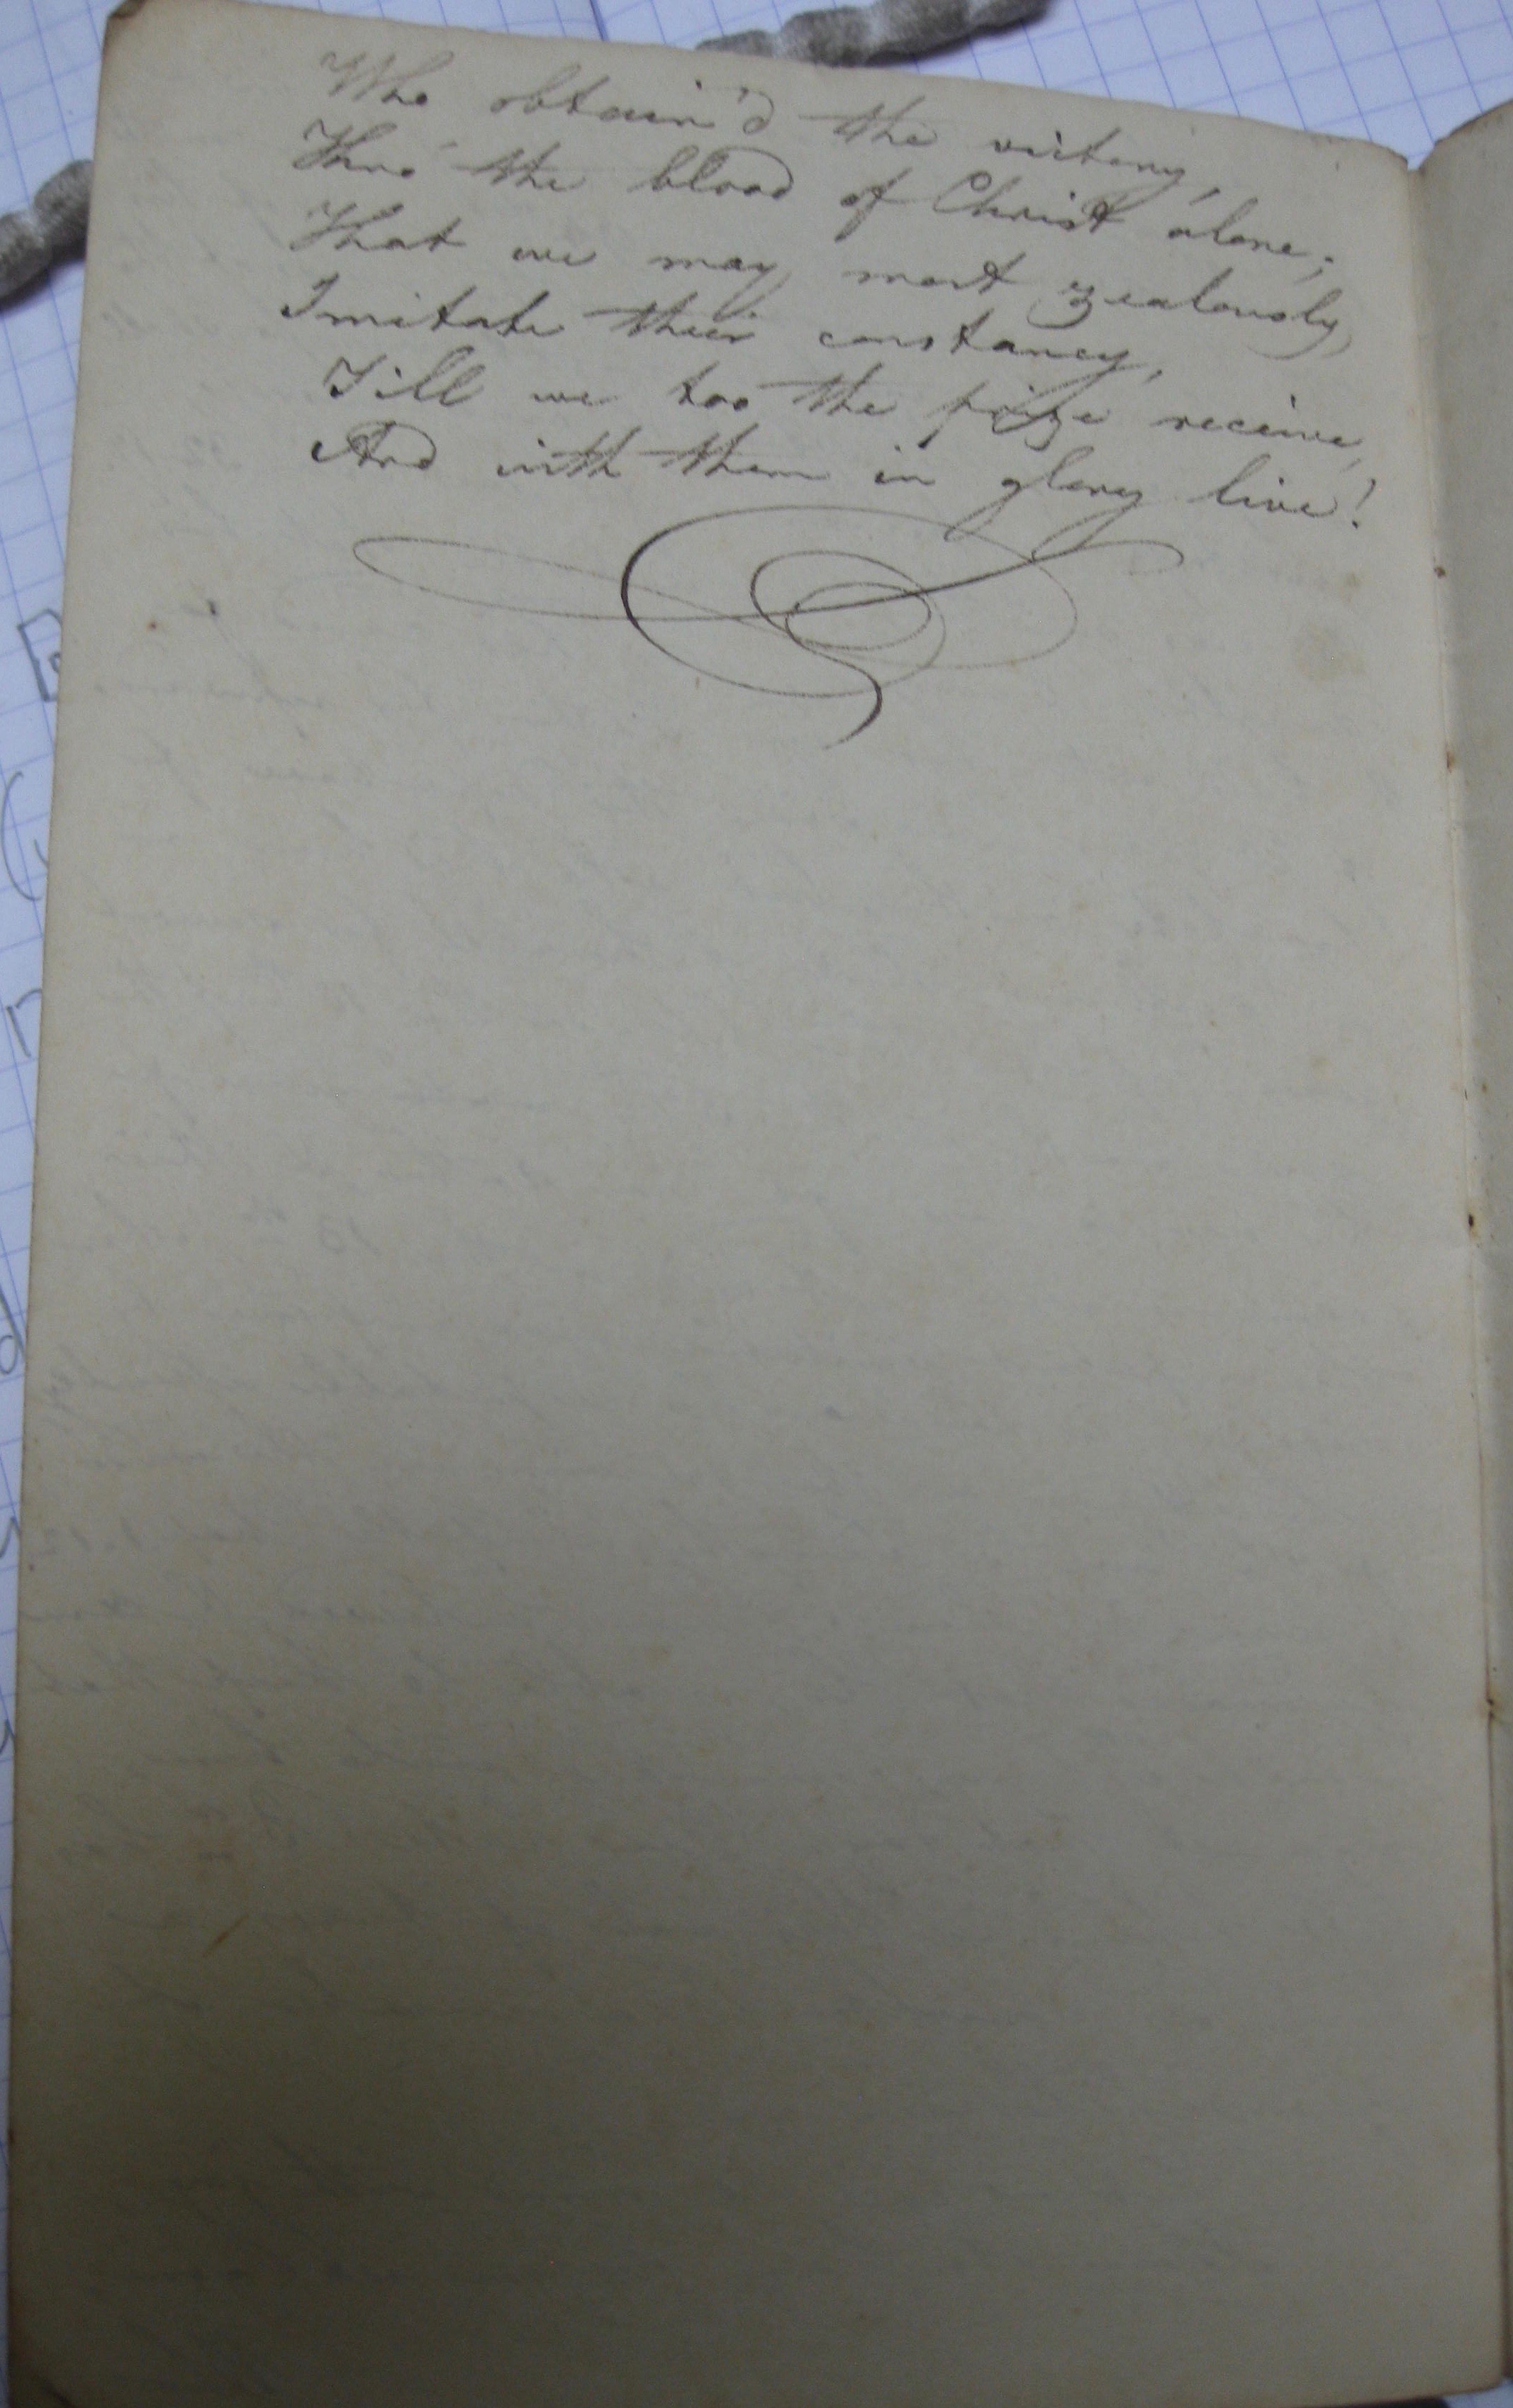 Who obtain'd the victory,
Thro' the blood of Christ alone;
That we may most zealously,
Imitate their constancy,
Till we too the prize receive,
And with them in glory live!